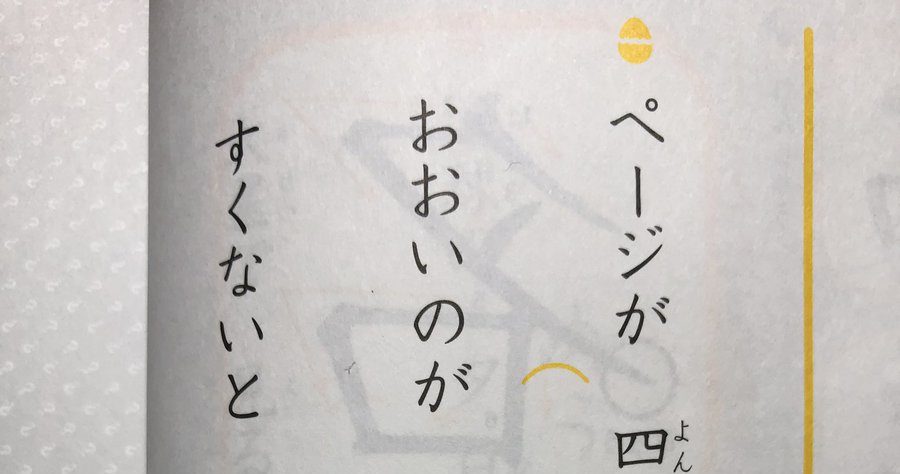 ページが 四
よん
おおいのが
すくないと